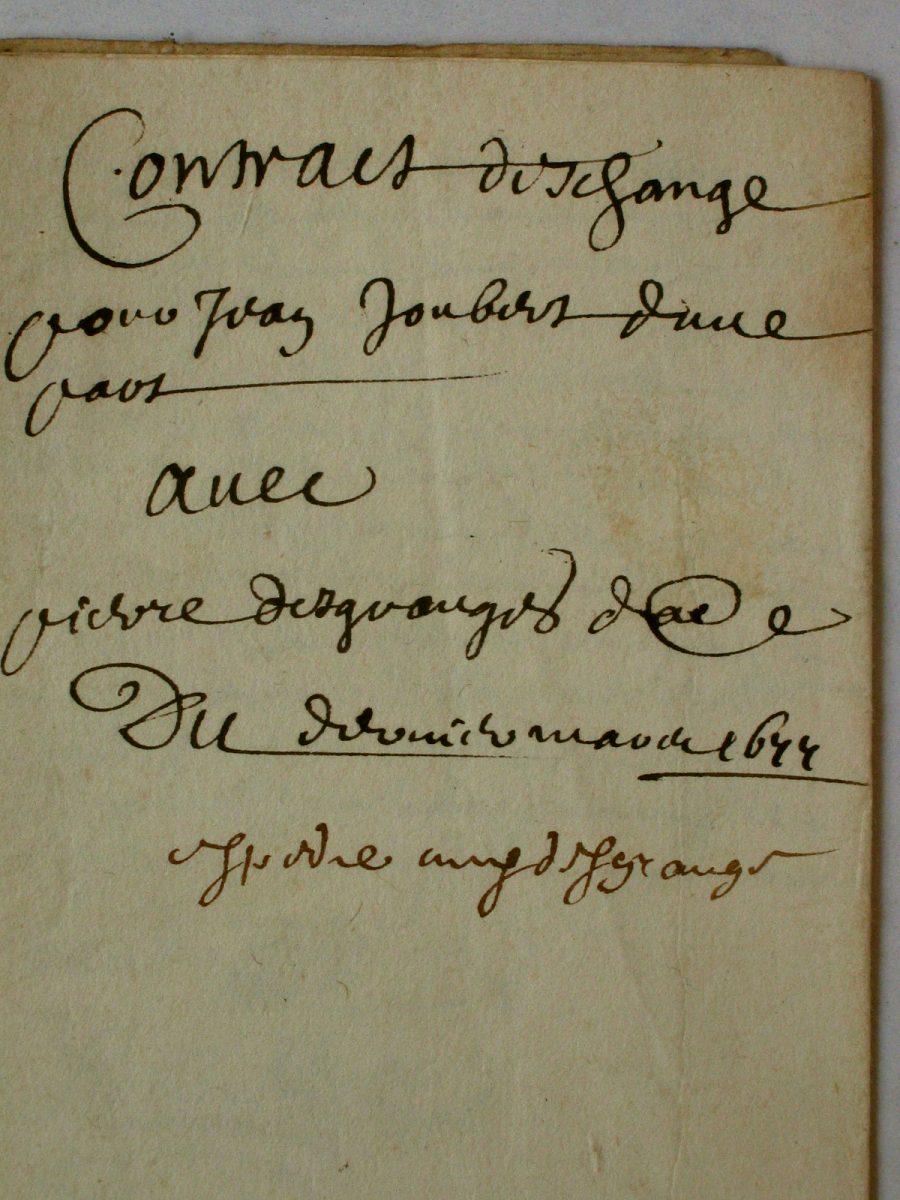 Contract deschange
pour Jean Joubert dune
part
auec
pierre desgranges
Du dernier mars 1644
desgrange